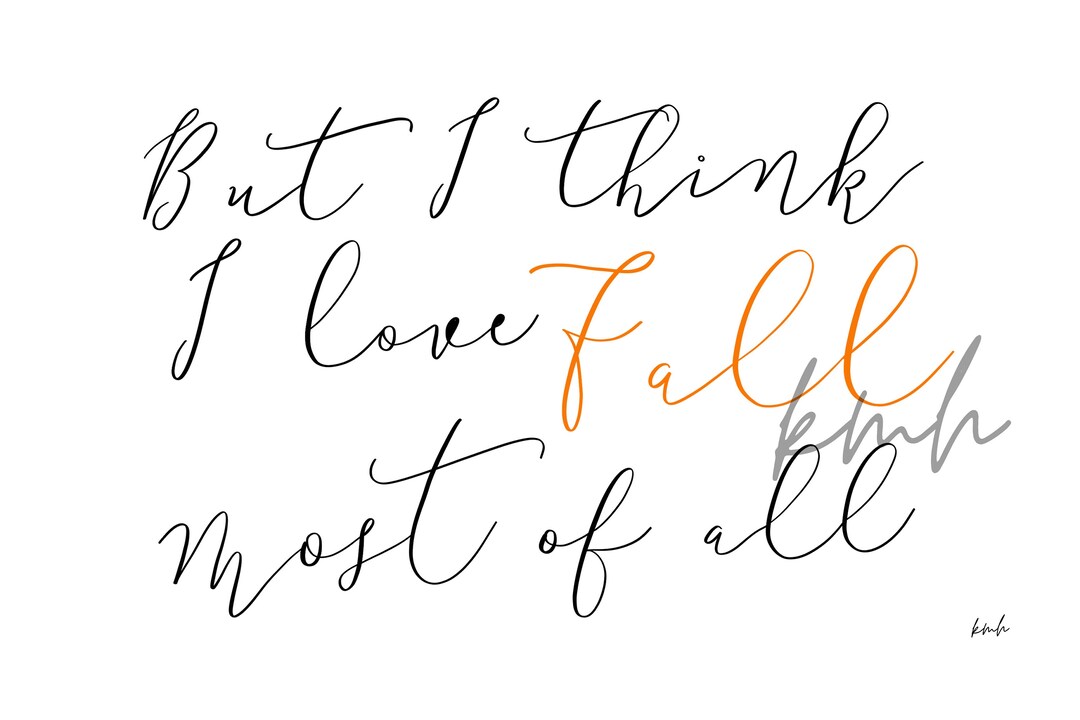 But I think
I love Fall
kmh
most of all
kmh